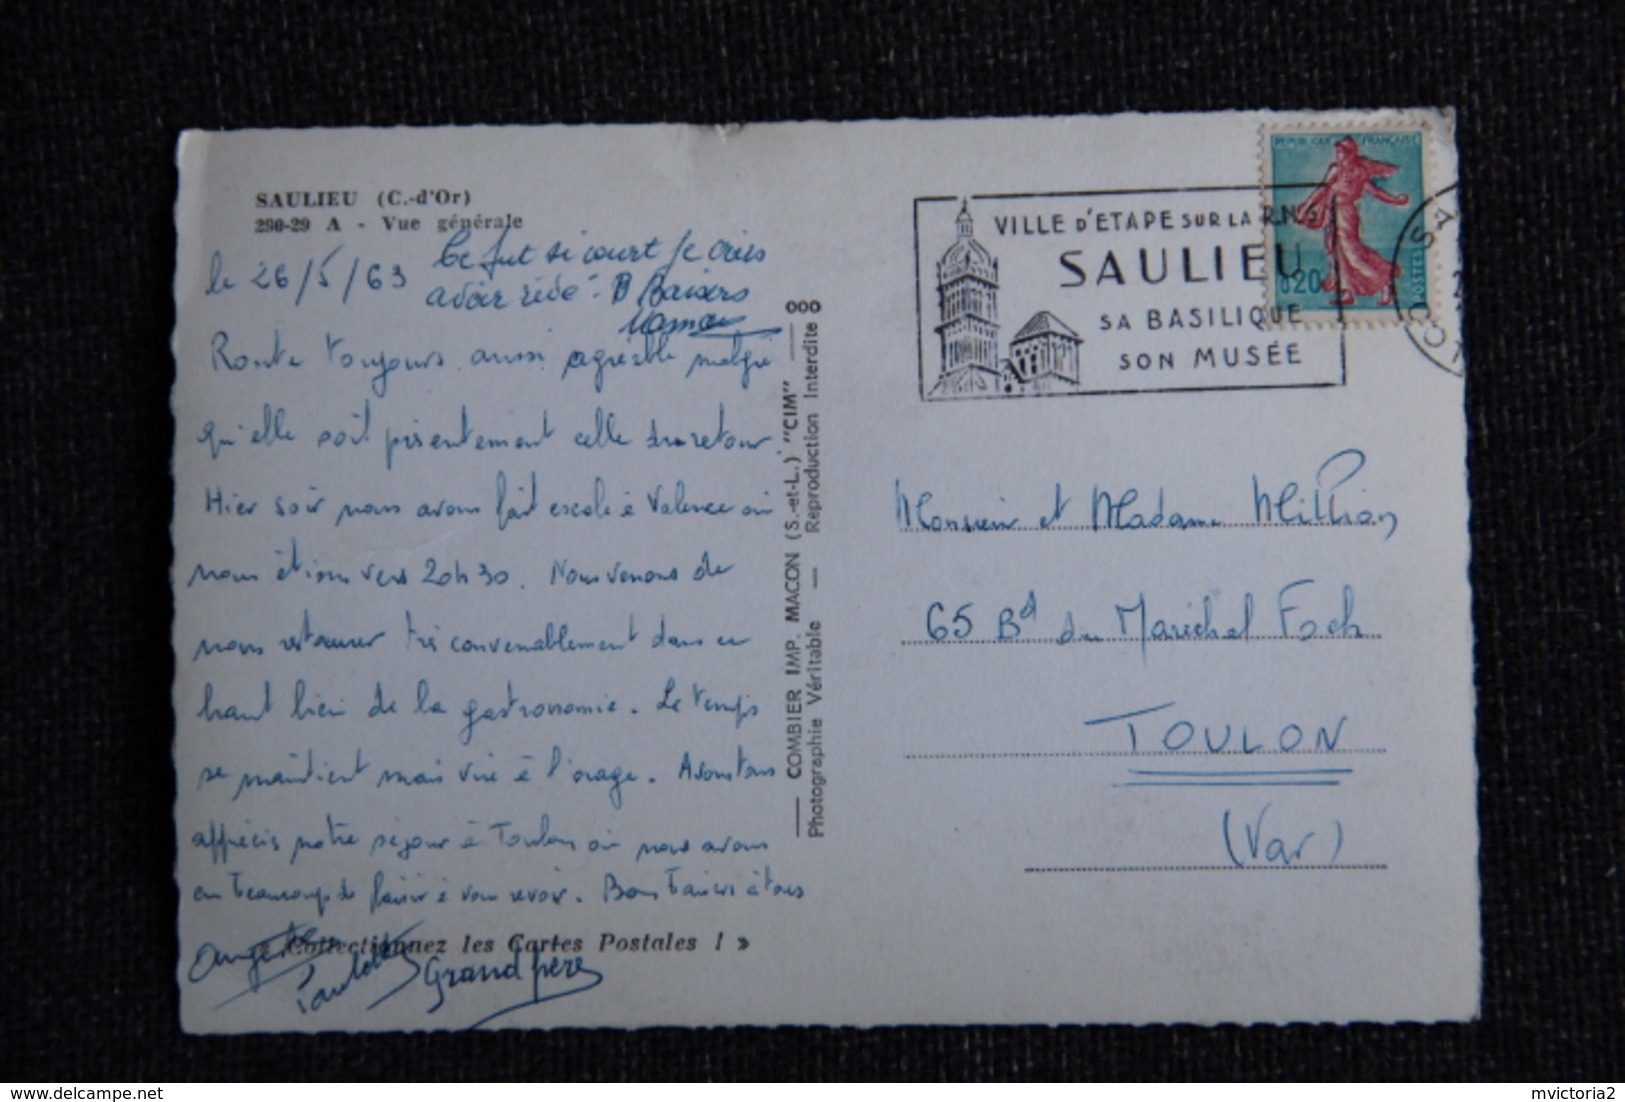 SAULIEU (C.-d'Or)
290-29 A - Vue générale
le 26/5/63
Ce fut si court je crois
avoir rêvé - B Baisers
Maman
Route toujours aussi agréable malgré
qu'elle soit présentement celle du retour.
Hier soir nous avons fait escale à Valence où
nous étions vers 20h30. Nous venons de
nous restaurer très convenablement dans ce
haut lieu de la gastronomie. Le temps
se maintient mais vire à l'orage. Avons tous
apprécié notre séjour à Toulon où nous avons
eu beaucoup de plaisir à vous revoir. Bons baisers à tous
« Collectionnez les Cartes Postales ! »
Paulette
Grand père
COMBIER IMP. MACON (S.-et-L.) "CIM"
Photographie Véritable — Reproduction Interdite
VILLE D'ETAPE SUR LA R.N.6
SAULIEU
SA BASILIQUE
SON MUSÉE
REPUBLIQUE FRANÇAISE
0,20
POSTES
Monsieur et Madame Million
65 Bd du Maréchal Foch
TOULON
(Var)
mvictoria2